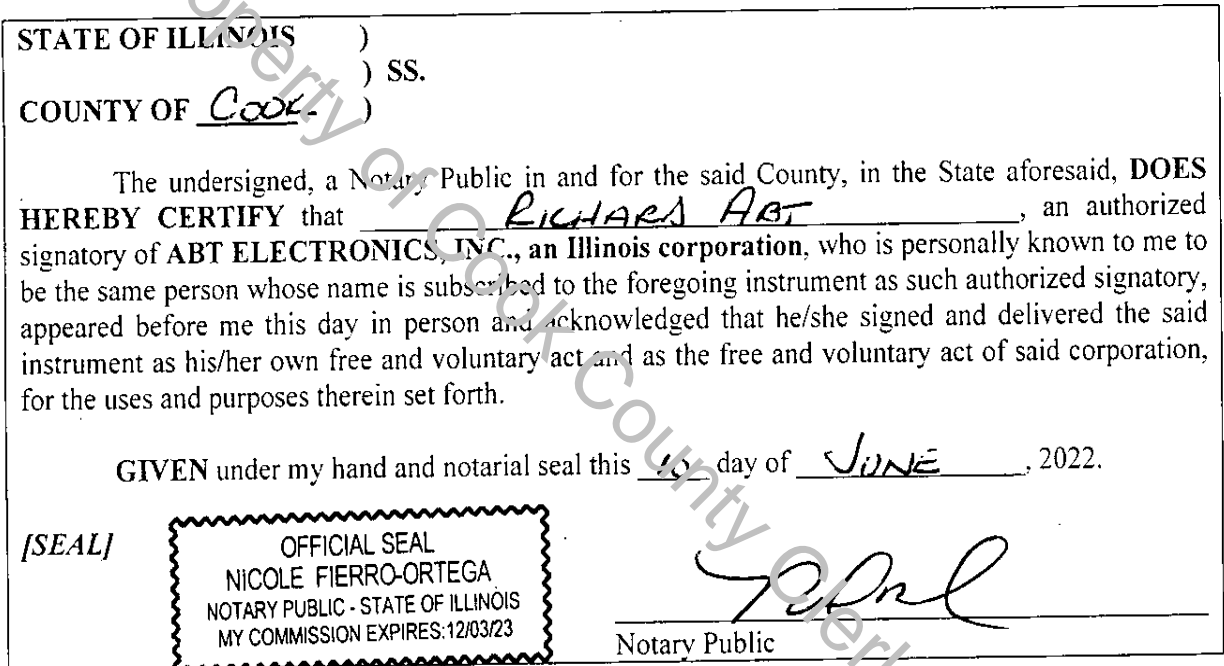 STATE OF ILLINOIS )
) SS.
COUNTY OF Cook )
The undersigned, a Notary Public in and for the said County, in the State aforesaid, DOES
HEREBY CERTIFY that RICHARD ABT, an authorized
signatory of ABT ELECTRONICS, INC., an Illinois corporation, who is personally known to me to
be the same person whose name is subscribed to the foregoing instrument as such authorized signatory,
appeared before me this day in person and acknowledged that he/she signed and delivered the said
instrument as his/her own free and voluntary act and as the free and voluntary act of said corporation,
for the uses and purposes therein set forth.
GIVEN under my hand and notarial seal this 10 day of JUNE, 2022.
[SEAL]
OFFICIAL SEAL
NICOLE FIERRO-ORTEGA
NOTARY PUBLIC - STATE OF ILLINOIS
MY COMMISSION EXPIRES:12/03/23
Notary Public
Property of Cook County Clerk